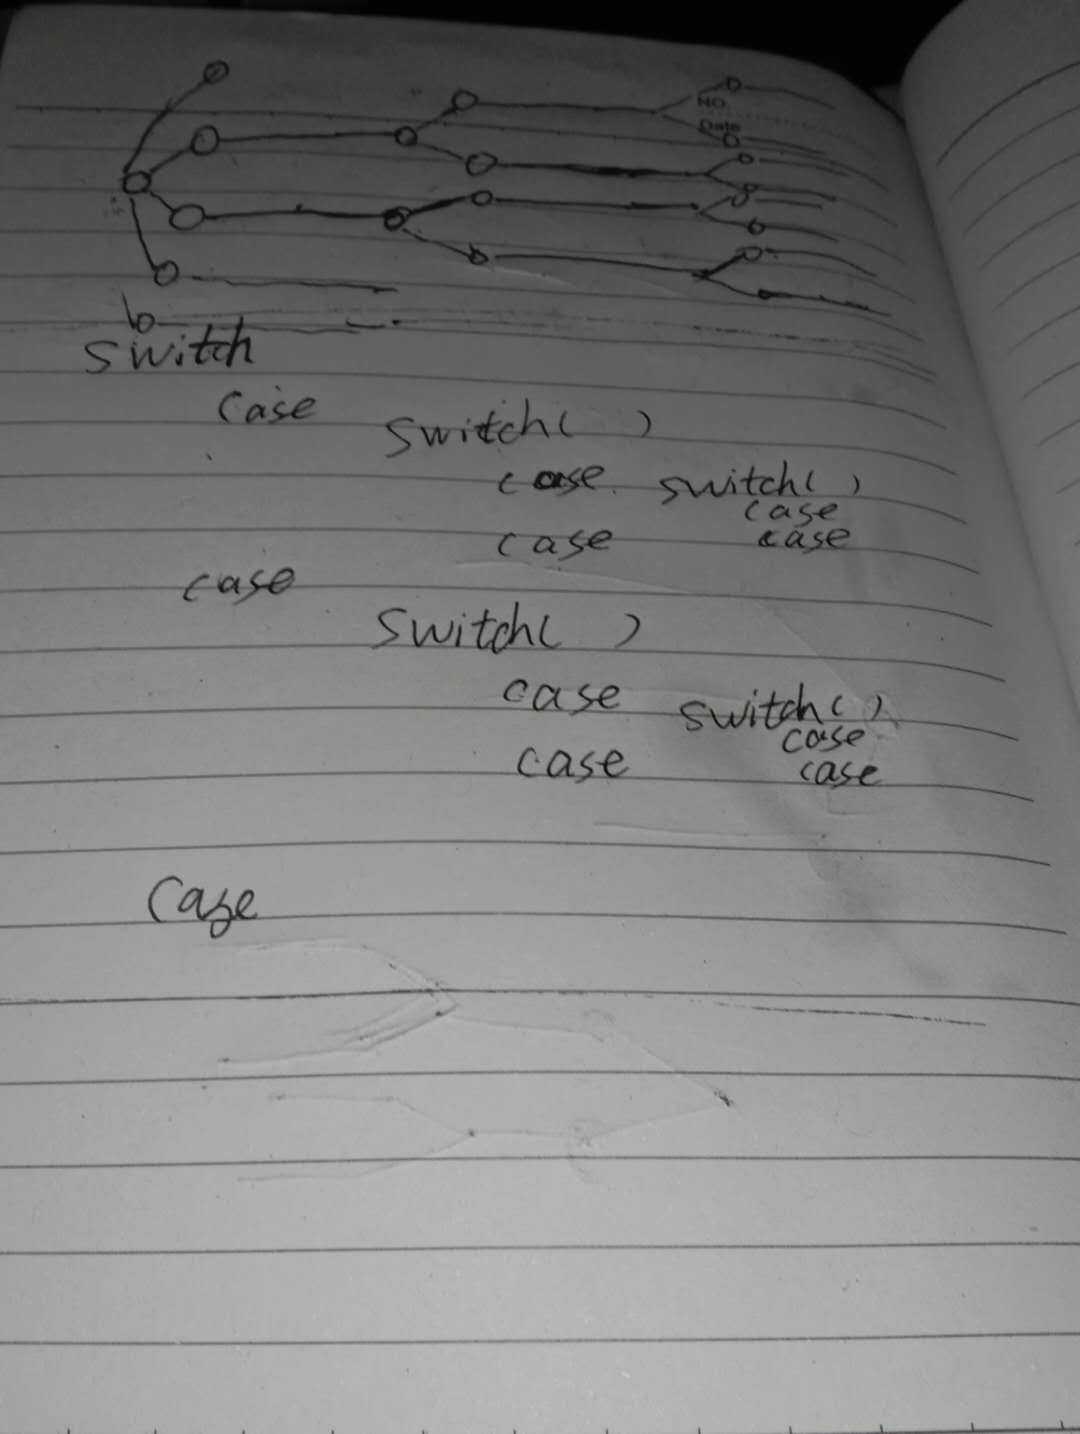 No.
Date
switch
case
switch( )
case switch( )
case
case case
case
switch( )
case switch( )
case
case case
case